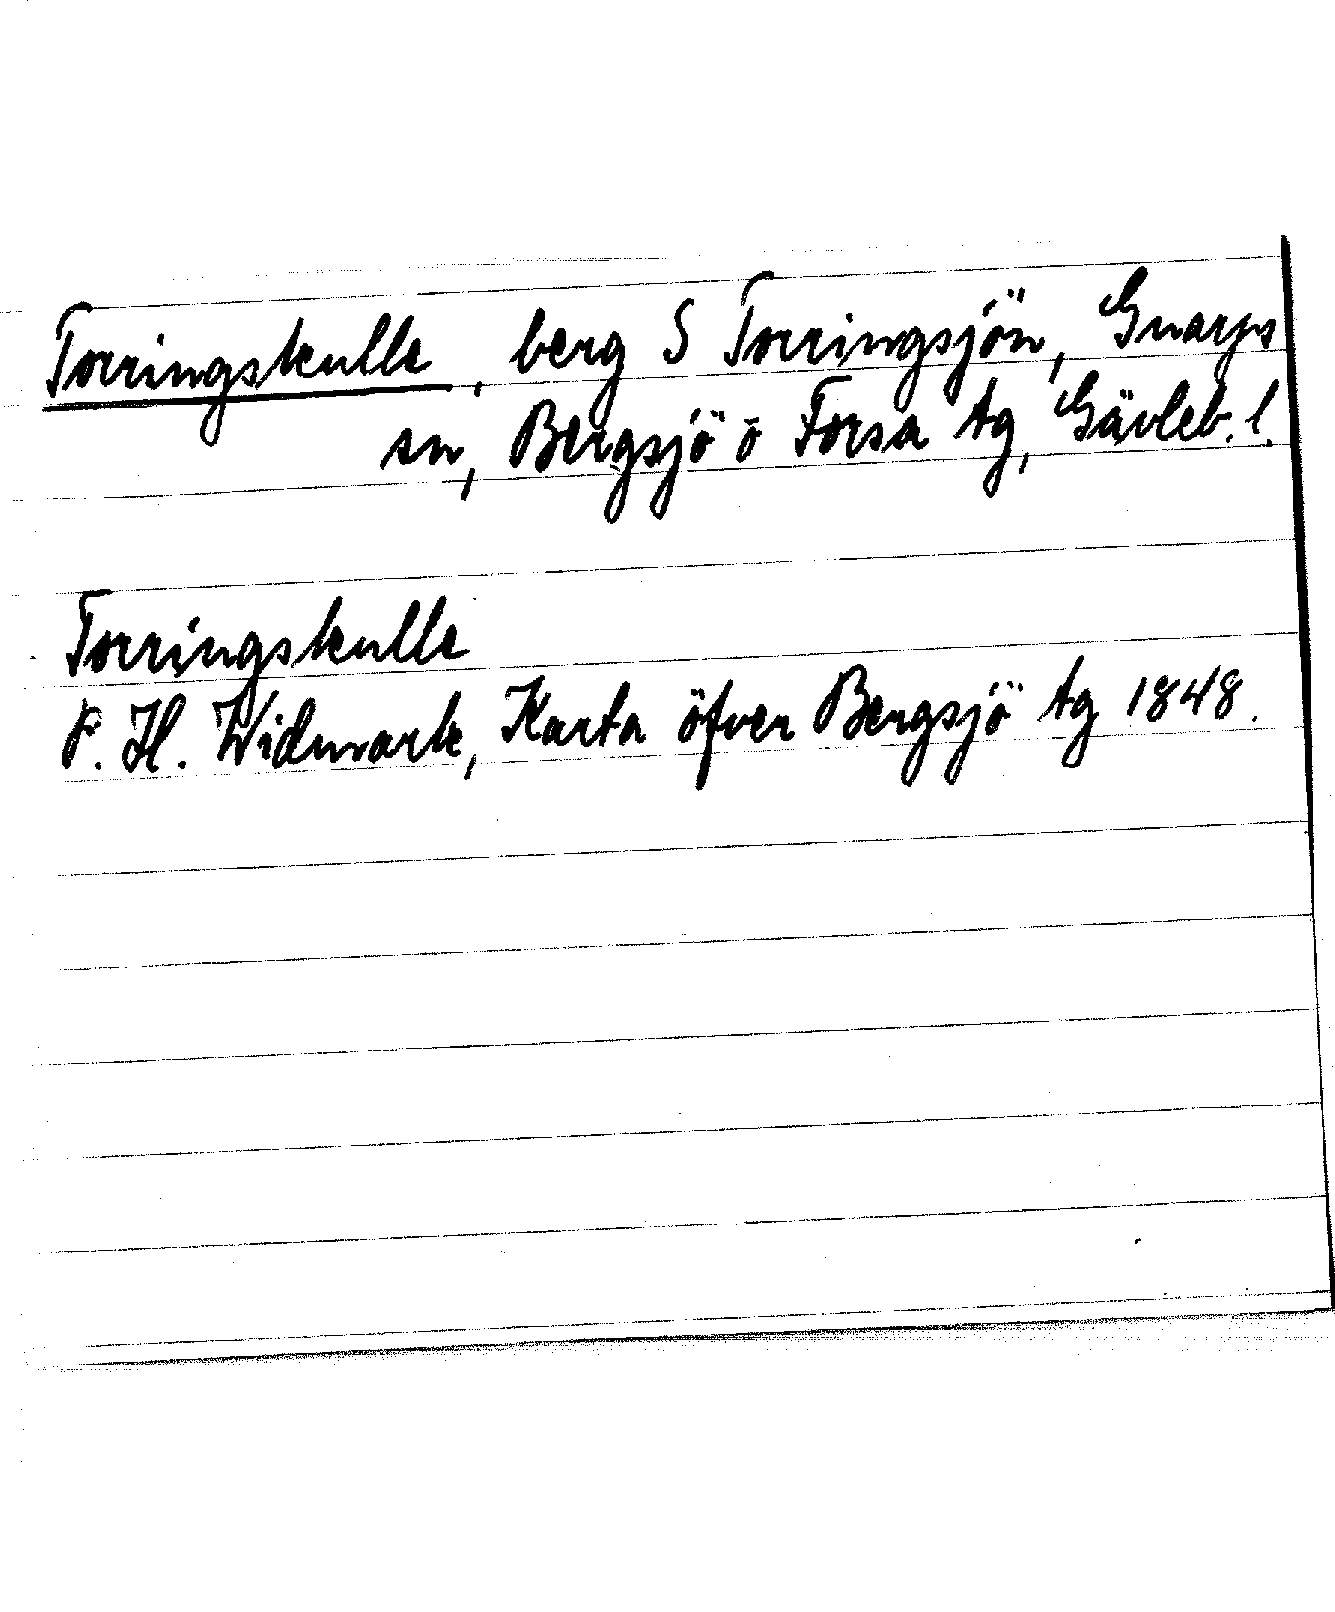 Torringskulle, berg S Torringsjön, Gnarps
sn, Bergsjö o Forsa tg, Gävleb. l.
Torringskulle
P. H. Widmark, Karta öfver Bergsjö tg 1848.